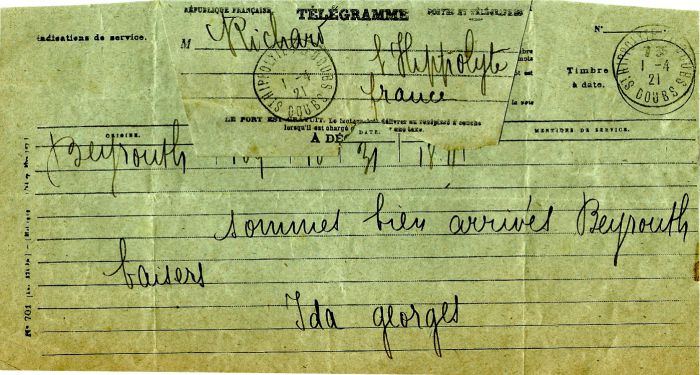 RÉPUBLIQUE FRANÇAISE TÉLÉGRAMME POSTES ET TÉLÉGRAPHES
Indications de service. N°
M Richard
St Hippolyte
france
Timbre
à date.
1-4
21
DOUBS
1-4
21
DOUBS
LE PORT EST GRATUIT. Le facteur doit délivrer un récépissé à souche
lorsqu'il est chargé une taxe.
ORIGINE. A DATE. MENTIONS DE SERVICE.
Beyrouth 31
sommes bien arrivés Beyrouth
baisers
Ida georges
N° 701